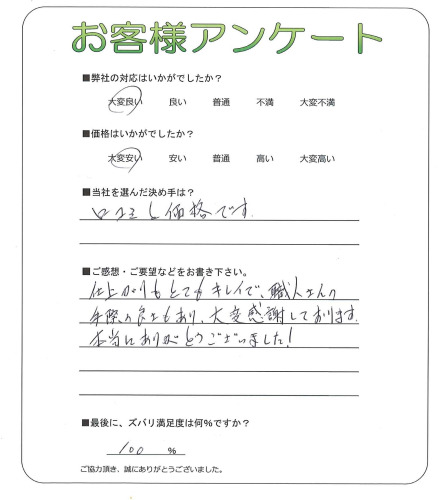 お客様アンケート
■弊社の対応はいかがでしたか?
大変良い 良い 普通 不満 大変不満
■価格はいかがでしたか?
大変安い 安い 普通 高い 大変高い
■当社を選んだ決め手は?
口コミと価格です。
■ご感想・ご要望などをお書き下さい。
仕上がりもとてもキレイで、職人さんの
手際の良さもあり、大変感謝しております。
本当にありがとうございました!
■最後に、ズバリ満足度は何%ですか?
100 %
ご協力頂き、誠にありがとうございました。